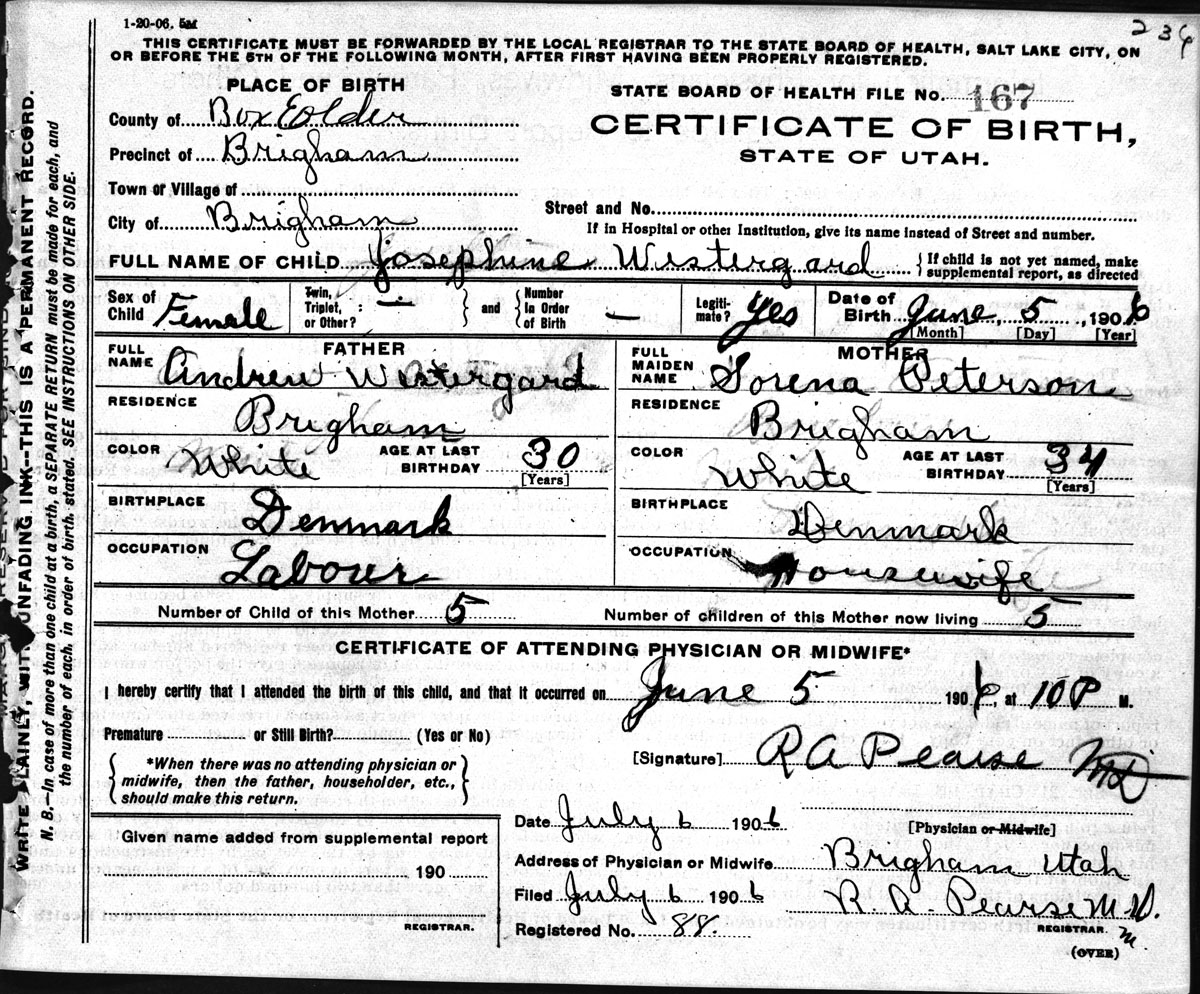 1-20-06. 5M
236
THIS CERTIFICATE MUST BE FORWARDED BY THE LOCAL REGISTRAR TO THE STATE BOARD OF HEALTH, SALT LAKE CITY, ON
OR BEFORE THE 5TH OF THE FOLLOWING MONTH, AFTER FIRST HAVING BEEN PROPERLY REGISTERED.
PLACE OF BIRTH
STATE BOARD OF HEALTH FILE No. 167
County of Box Eolder
CERTIFICATE OF BIRTH,
Precinct of Brigham
STATE OF UTAH.
Town or Village of
Street and No.
City of Brigham
If in Hospital or other Institution, give its name instead of Street and number.
FULL NAME OF CHILD Josephine Westergard { If child is not yet named, make supplemental report, as directed
Sex of Child Female Twin, Triplet, or Other? : — } and { Number In Order of Birth — Legiti-mate? Yes Date of Birth June 5, 1906
[Month] [Day] [Year]
FATHER
FULL NAME Andrew Westergard
RESIDENCE Brigham
COLOR White AGE AT LAST BIRTHDAY 30
[Years]
BIRTHPLACE Denmark
OCCUPATION Labour
MOTHER
FULL MAIDEN NAME Sorena Peterson
RESIDENCE Brigham
COLOR White AGE AT LAST BIRTHDAY 34
[Years]
BIRTHPLACE Denmark
OCCUPATION Housewife
Number of Child of this Mother 5 Number of children of this Mother now living 5
CERTIFICATE OF ATTENDING PHYSICIAN OR MIDWIFE*
I hereby certify that I attended the birth of this child, and that it occurred on June 5 1906, at 10 P M.
Premature or Still Birth? (Yes or No)
[Signature] R A Pearse MD
{ *When there was no attending physician or
midwife, then the father, householder, etc.,
should make this return. }
Date July 6 1906
[Physician or Midwife]
Given name added from supplemental report
190
REGISTRAR.
Address of Physician or Midwife Brigham Utah
Filed July 6 1906 R. A. Pearse M.D.
REGISTRAR.
Registered No. 88.
m.
(OVER)
WRITE PLAINLY, WITH UNFADING INK--THIS IS A PERMANENT RECORD.
N. B.—In case of more than one child at a birth, a SEPARATE RETURN must be made for each, and
the number of each, in order of birth, stated. SEE INSTRUCTIONS ON OTHER SIDE.